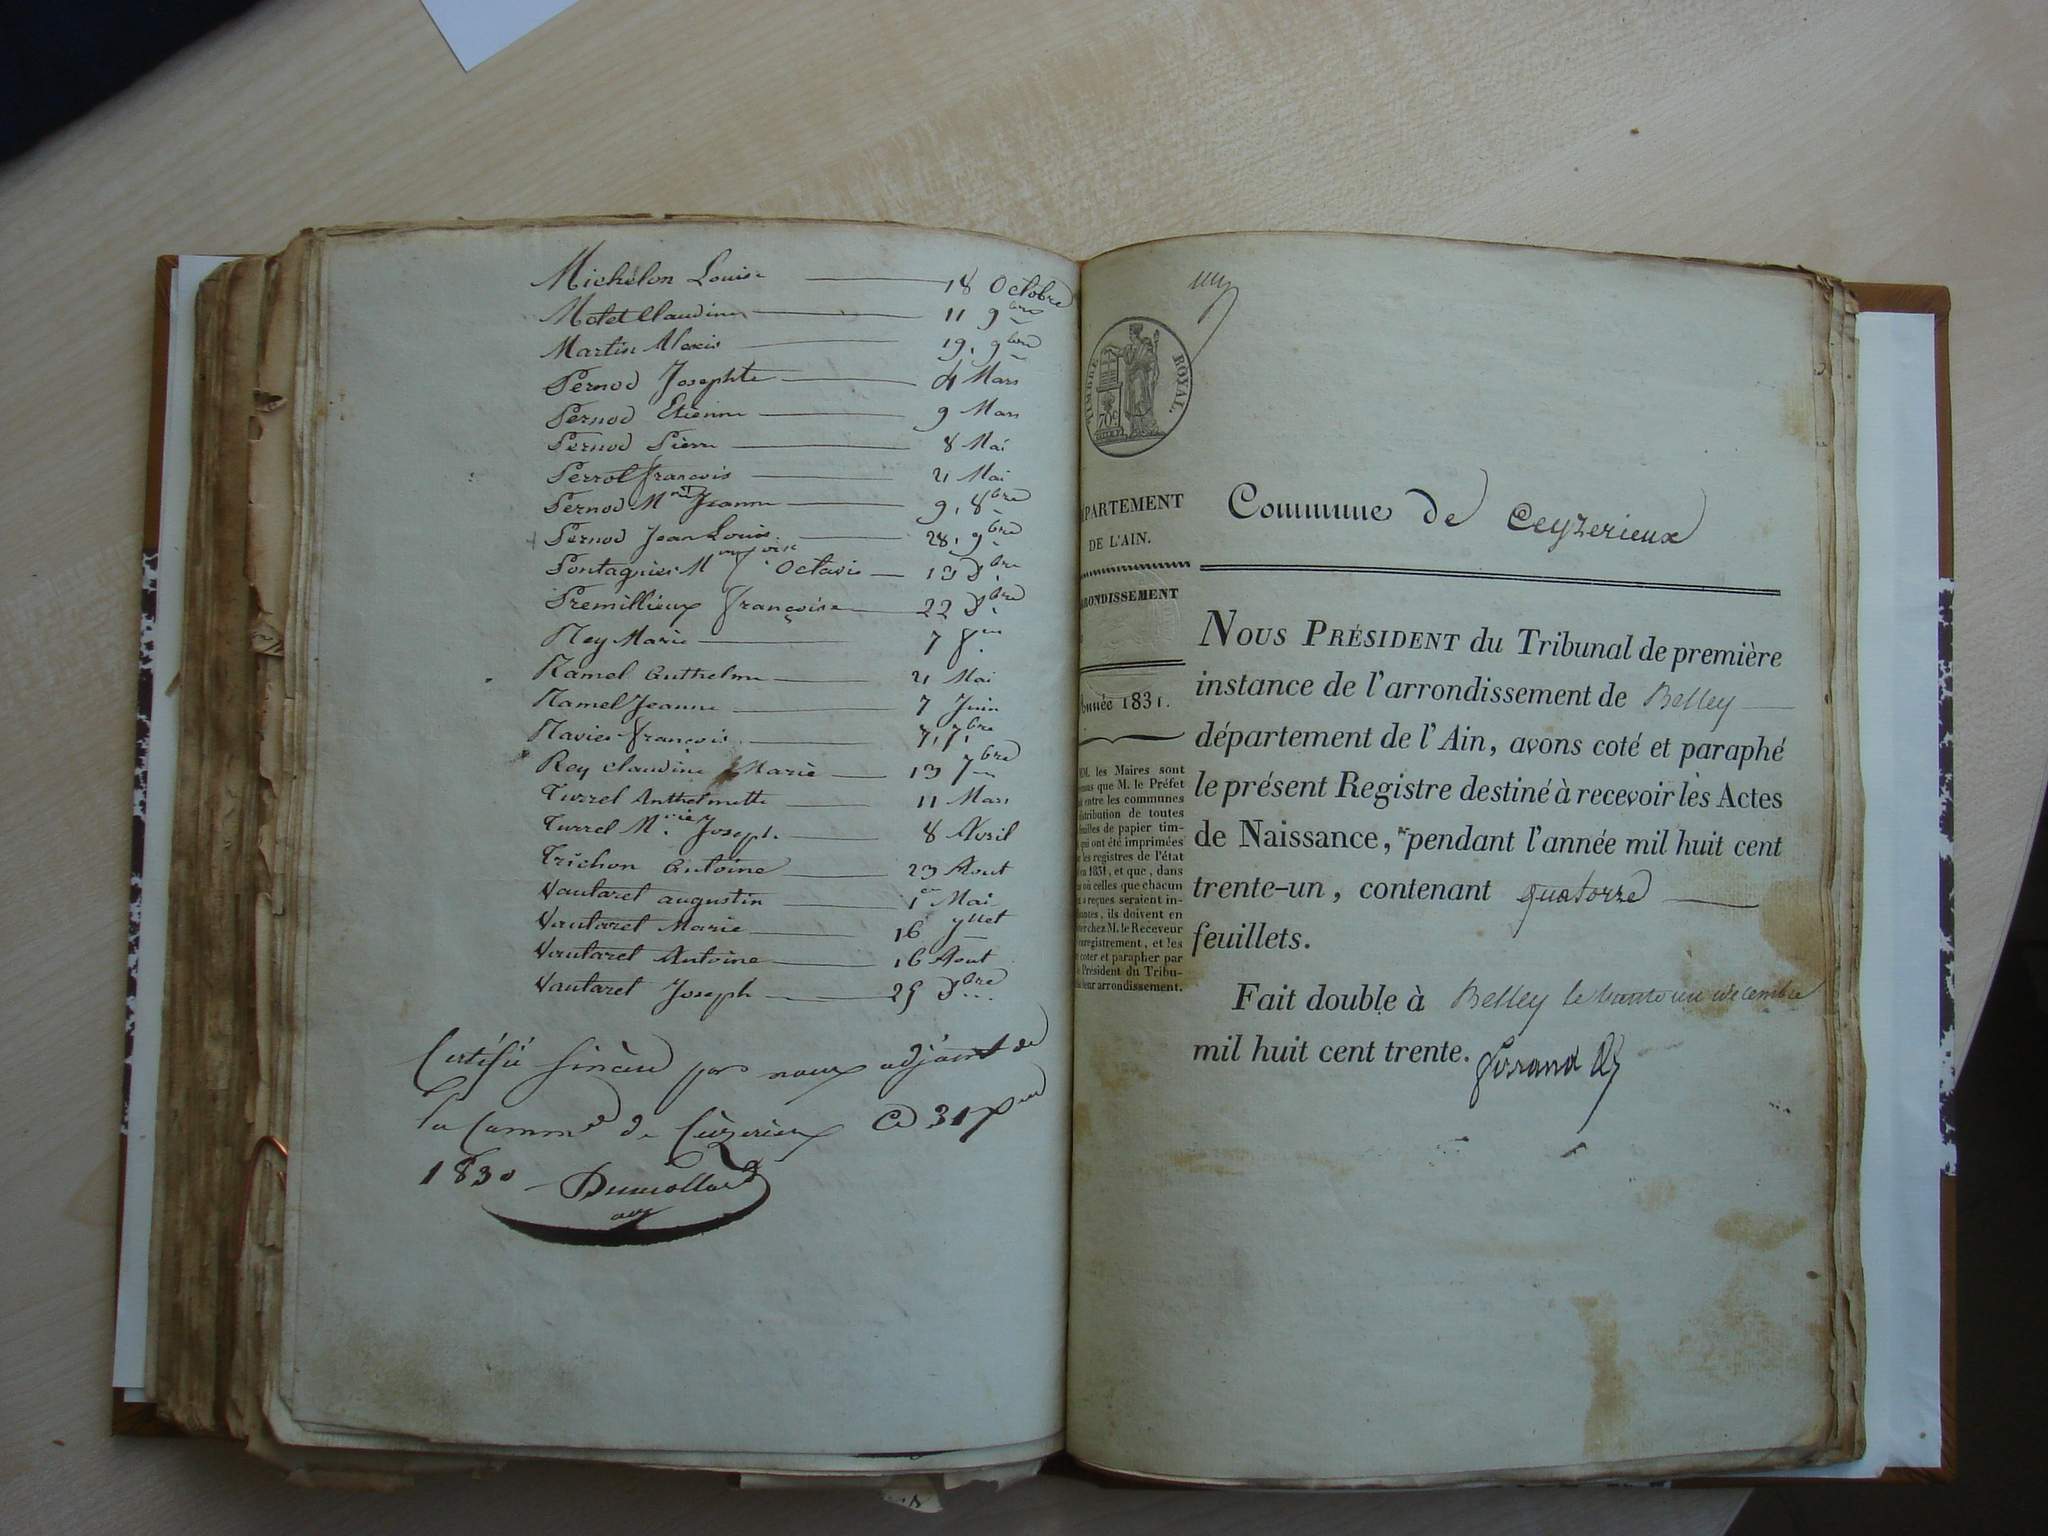 Michelon Louise 18 Octobre
Motet Claudine 11 9bre
Martin Alexis 19. 9bre
Pernod Josephte 4 Mars
Pernod Etienne 9 Mars
Pernod Pierre 8 Mai
Perrot françois 21 Mai
Pernod Mrie Jeanne 9. 8bre
Pernod Jean Louis 28. 9bre
Pontagnier M Octavie 13 Dbre
Premillieux françoise 22 Dbre
Rey Marie 7
Ramel Anthelme 21 Mai
Ramel Jeanne 7 Juin
Ravier françois 7. 7bre
Rey Claudine Marie 13 7bre
Turrel Anthelmette 11 Mars
Turrel M. Joseph 8 Avril
Trichon Antoine 23 Aout
Vautaret augustin 1er Mai
Vautaret Marie 16 Jllet
Vautaret Antoine 16 Aout
Vautaret Joseph 25 Dbre
Certifié sincère par nous adjoint de
la Comme de Ceyzerieux Ce 31 Xbre
1830 Dumollard
adj
TIMBRE ROYAL.
70c
PARTEMENT
DE L'AIN.
RONDISSEMENT
nnée 1831.
MM. les Maires sont
nus que M. le Préfet
entre les communes
stribution de toutes
euilles de papier tim-
qui ont été imprimées
les registres de l'état
en 1831, et que, dans
où celles que chacun
reçues seraient in-
antes, ils doivent en
chez M. le Receveur
enregistrement, et les
coter et parapher par
Président du Tribu-
leur arrondissement.
Commune de Ceyzerieux
NOUS PRÉSIDENT du Tribunal de première
instance de l'arrondissement de Belley
département de l'Ain, avons coté et paraphé
le présent Registre destiné à recevoir les Actes
de Naissance, pendant l'année mil huit cent
trente-un, contenant quatorze
feuillets.
Fait double à Belley le trente un décembre
mil huit cent trente.